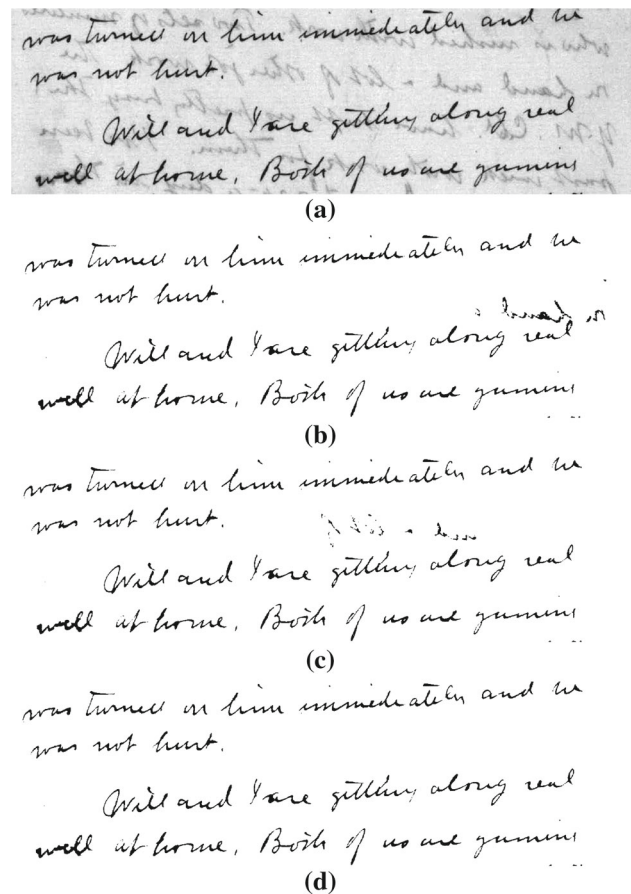 was turned on him immediately and he
was not hurt.
Will and I are getting along real
well at home, Both of us are gaining
(a)
was turned on him immediately and he
was not hurt.
Will and I are getting along real
well at home, Both of us are gaining
(b)
was turned on him immediately and he
was not hurt.
Will and I are getting along real
well at home, Both of us are gaining
(c)
was turned on him immediately and he
was not hurt.
Will and I are getting along real
well at home, Both of us are gaining
(d)